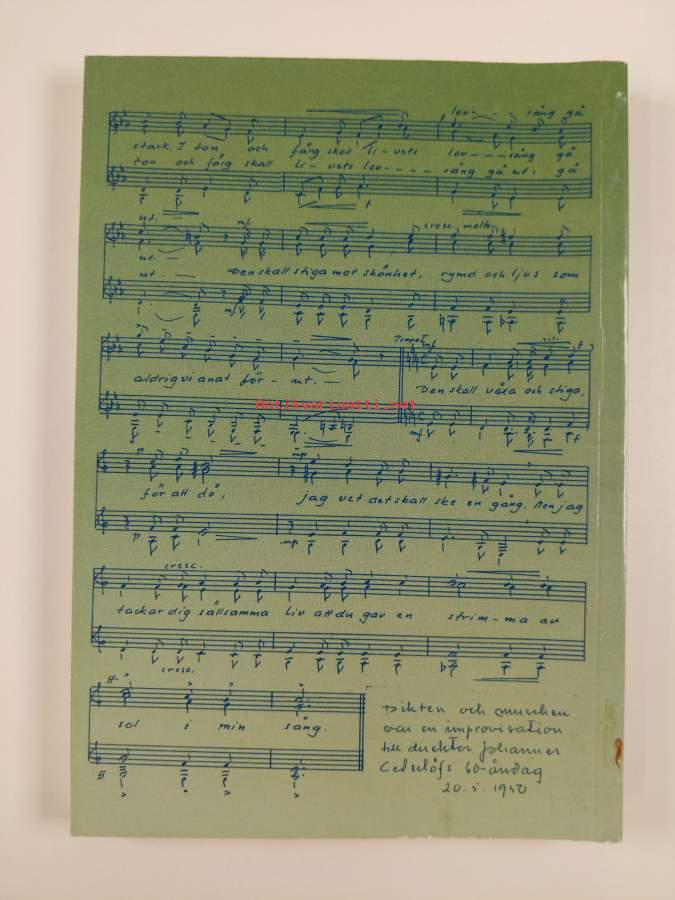 lov - - sång gå
stark. I ton och färg skall li-vets lov - - - sång gå
ton och färg skall li-vets lov - - - - sång gå ut; gå
f
ut. —
mf
cresc. molto
ut. —
ut. — Den skall stiga mot skönhet, rymd och ljus som
mf
Tempo I
mf
rit.
f
aldrig vi anat för-ut. —
Den skall växa och stiga,
Antikvariaatti.net
mf
f
p
mp
för att dö, jag vet det skall ske en gång. Men jag
p
mp
cresc.
tackar dig sällsamma liv att du gav en strim-ma av
cresc.
ff
sol i min sång.
ff
Dikten och musiken
var en improvisation
till direktor Johannes
Cederlöfs 60-årsdag
20.5.1950